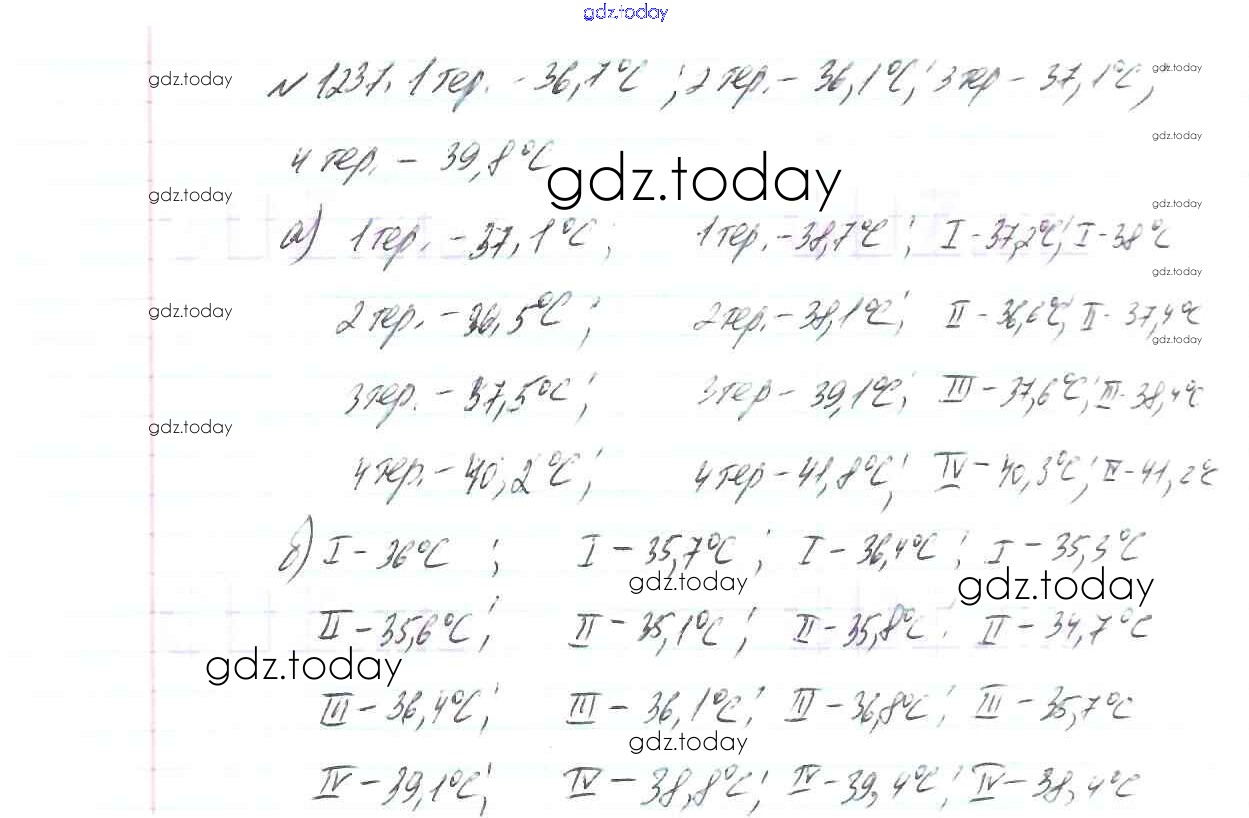 gdz.today
gdz.today № 1237. 1 тер. - 36,7°C ; 2 тер. - 36,1°C ; 3 тер - 37,1°C ; gdz.today
gdz.today
4 тер. - 39,8°C gdz.today
gdz.today gdz.today
а) 1 тер. - 37,1°C ; 1 тер. - 38,7°C ; I - 37,2°C ; I - 38°C
gdz.today
gdz.today 2 тер. - 36,5°C ; 2 тер. - 38,1°C ; II - 36,6°C ; II - 37,4°C
gdz.today
3 тер. - 37,5°C ; 3 тер - 39,1°C ; III - 37,6°C ; III - 38,4°C
gdz.today
4 тер. - 40,2°C ; 4 тер - 41,8°C ; IV - 40,3°C ; IV - 41,2°C
б) I - 36°C ; I - 35,7°C ; I - 36,4°C ; I - 35,3°C
gdz.today gdz.today
II - 35,6°C ; II - 35,1°C ; II - 35,8°C ; II - 34,7°C
gdz.today
III - 36,4°C ; III - 36,1°C ; III - 36,8°C ; III - 35,7°C
gdz.today
IV - 39,1°C ; IV - 38,8°C ; IV - 39,4°C ; IV - 38,4°C